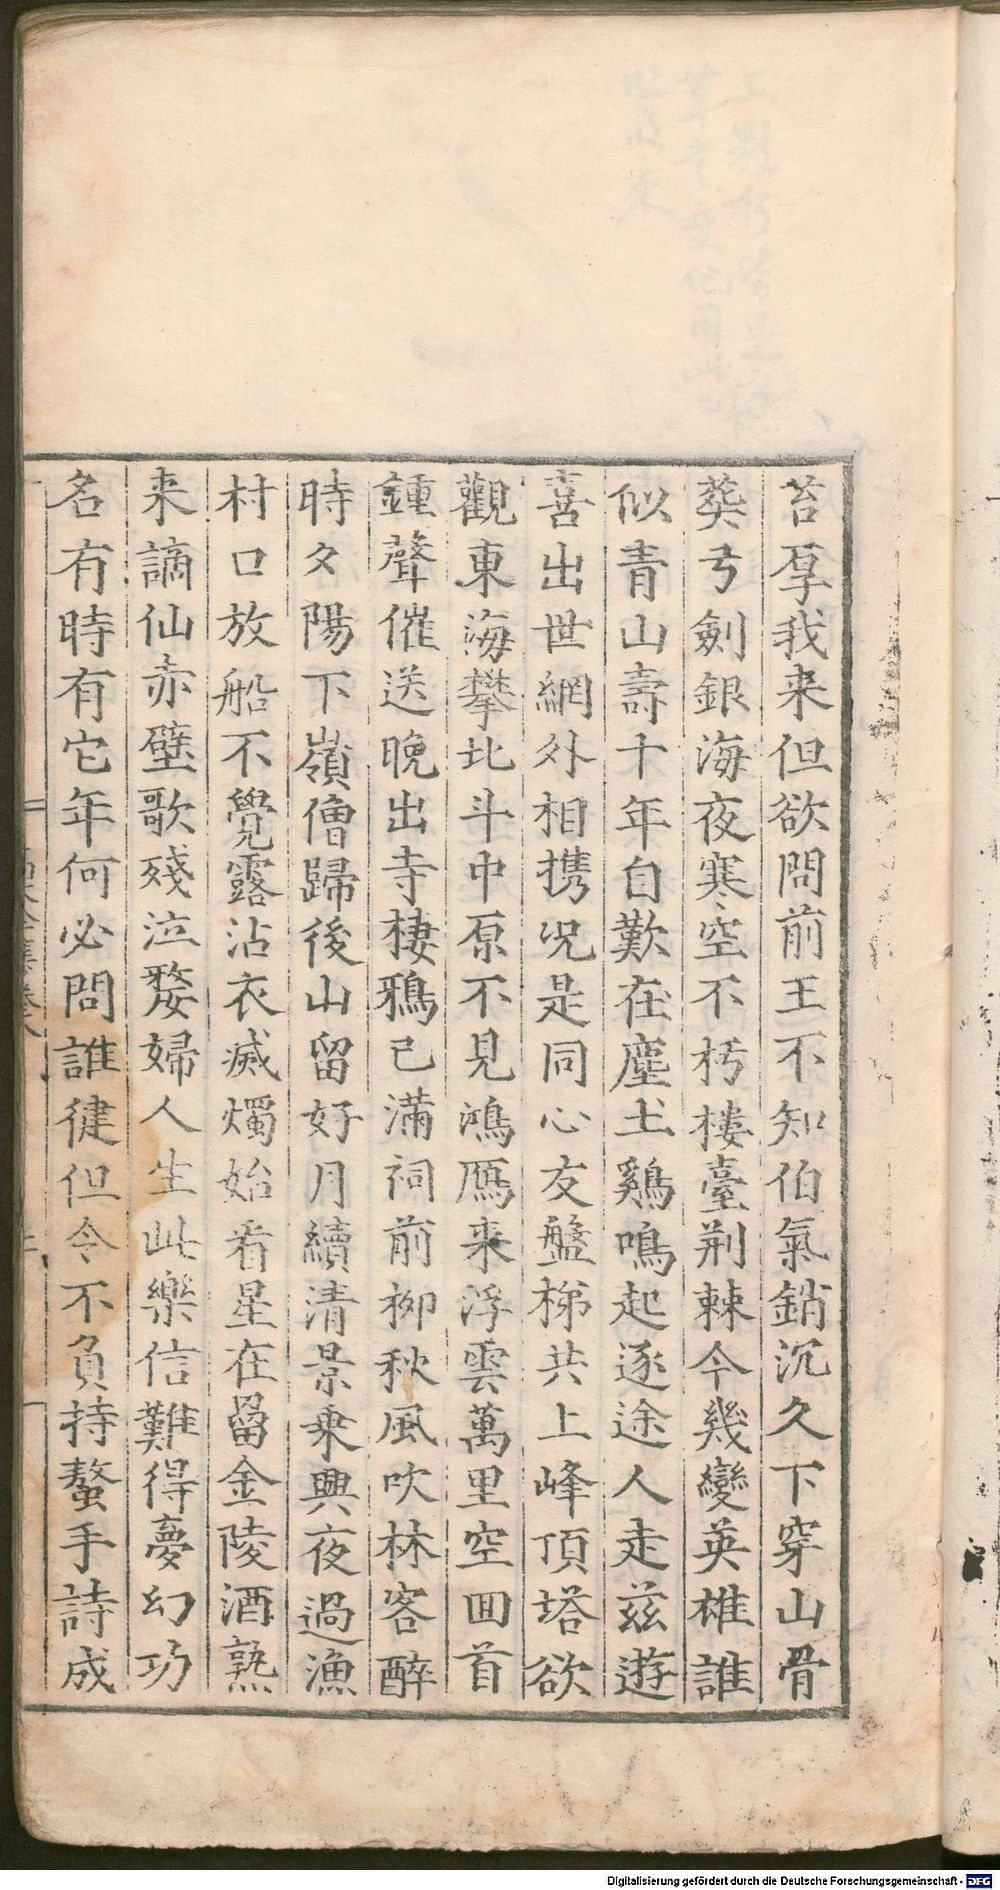 苔厚我来但欲問前王不知伯氣銷沉久下穿山骨
葬弓劍銀海夜寒空不朽樓臺荆棘今幾變英雄誰
似青山壽十年自歎在塵土鷄鳴起逐途人走兹遊
喜出世網外相携况是同心友盤梯共上峰頂塔欲
觀東海攀北斗中原不見鴻鴈来浮雲萬里空囬首
鍾聲催送晚出寺棲鴉已滿祠前栁秋風吹林客醉
時夕陽下嶺僧歸後山留好月續清景乗興夜過漁
村口放船不覺露沾衣滅燭始看星在罶金陵酒熟
来謫仙赤壁歌殘泣嫠婦人生此樂信難得夢幻功
名有時有它年何必問誰健但令不負持螯手詩成
Digitalisierung gefördert durch die Deutsche Forschungsgemeinschaft - DFG